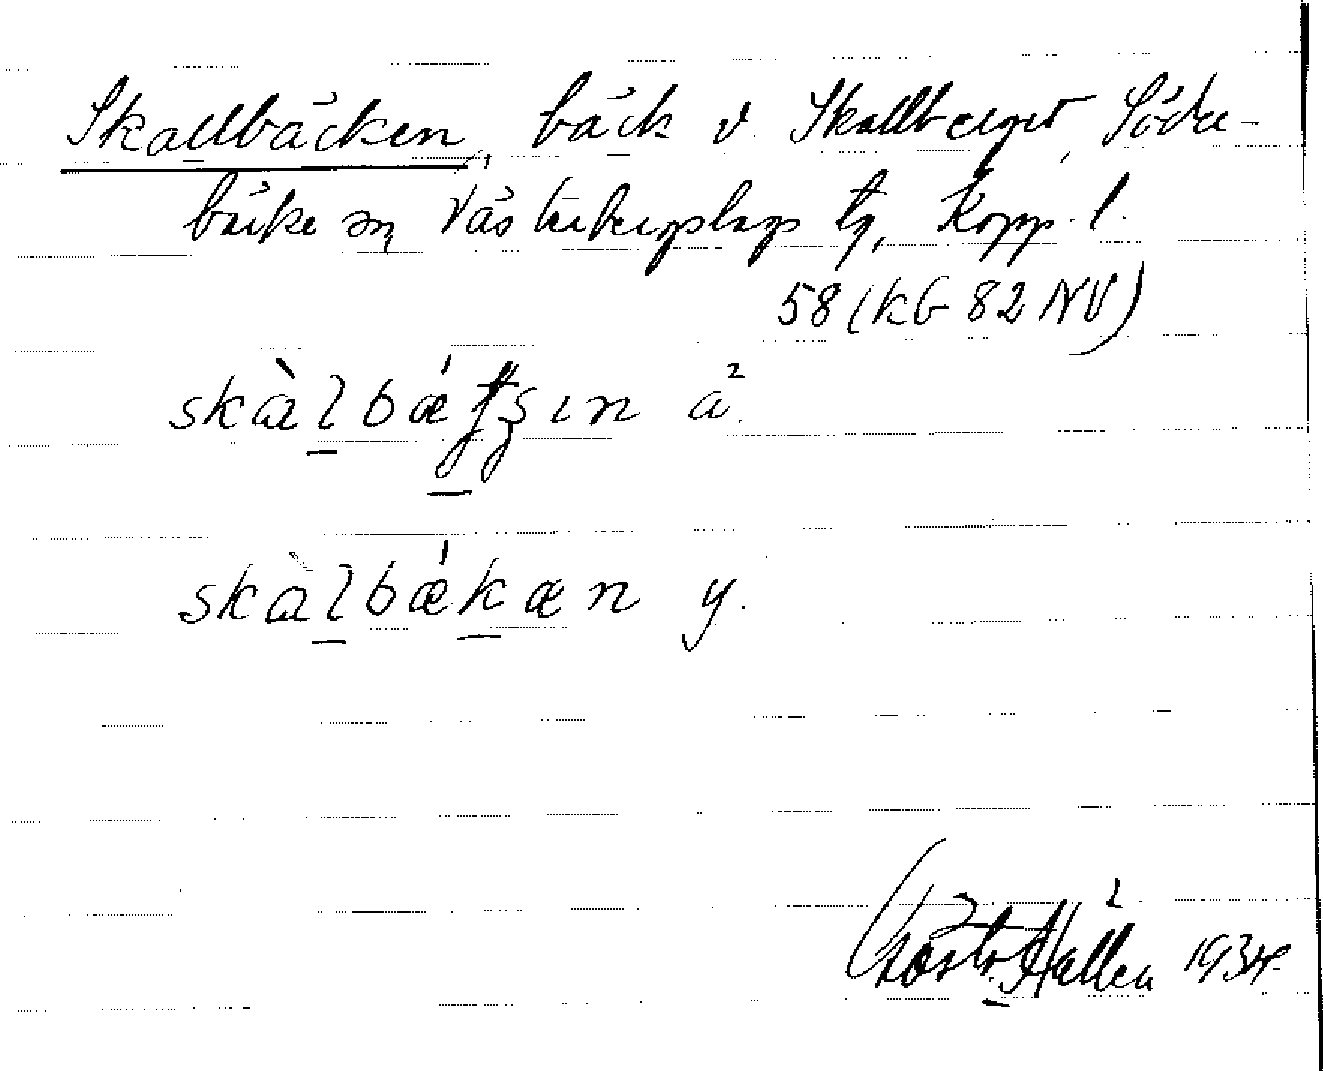 Skallbäcken, bäck v. Skallberget, Söder-
bärke sn Västerbergslags tg, Kopp. l.
58 (KG 82 NV)
skàlbǽʈʂın ä².
skàlbǽkæn y.
Gösta Hallén 1934.